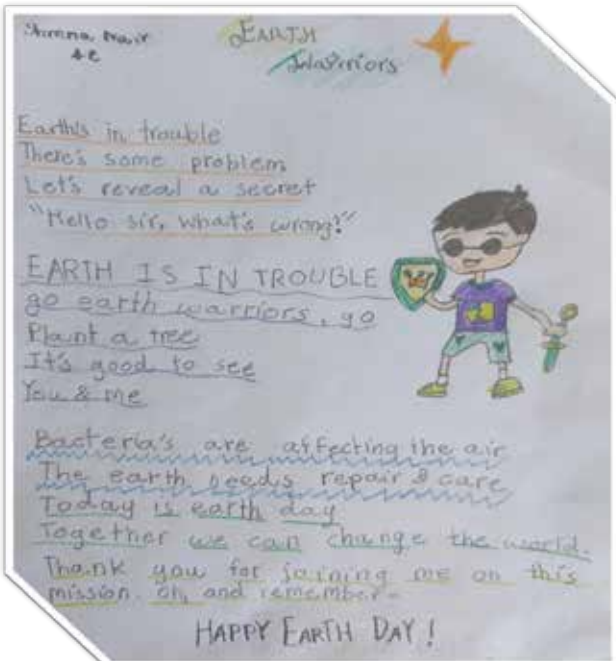 Nair
4C
EARTH
Warriors
Earth's in trouble
There's some problem
Let's reveal a secret
"Hello sir, what's wrong?"
EARTH IS IN TROUBLE
go earth warriors, go
Plant a tree
It's good to see
You & me
Bacteria's are affecting the air
The earth needs repair & care
Today is earth day
Together we can change the world.
Thank you for joining me on this
mission. Oh, and remember-
HAPPY EARTH DAY!